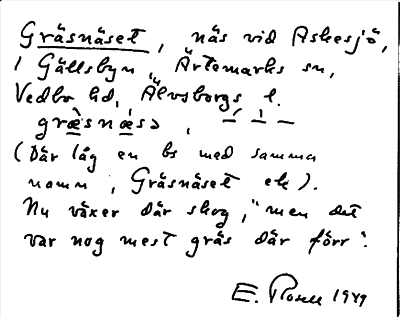 Gräsnäset, näs vid Askesjö,
i Gällsbyn, Ärtemarks sn,
Vedbo hd, Älvsborgs l.
græ̀snǽsə,
(Där låg en bs med samma
namn, Gräsnäset ek).
Nu växer där skog, "men det
var nog mest gräs där förr".
E. 1949